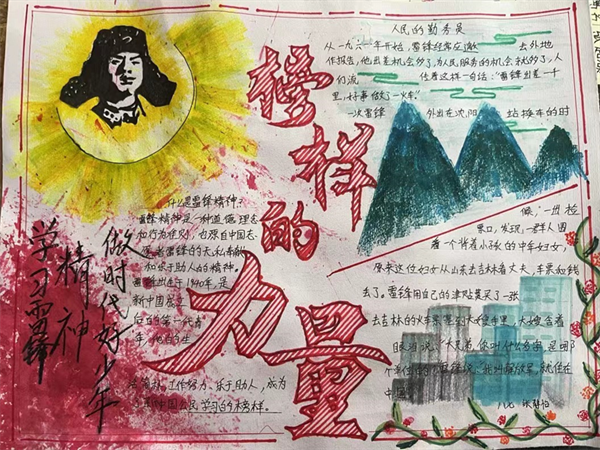 榜样的力量
人民的勤务员
从一九六一年开始,雷锋经常应邀 去外地
作报告,他出差机会多了,为人民服务的机会就多了,人
们流 传着这样一句话:"雷锋出差一千
里,好事做了一火车."
一次雷锋 外出在沈阳 站换车的时
候,一出检
票口,发现一群人围
着一个背着小孩的中年妇女,
原来这位妇女从山东去吉林看丈夫,车票和钱
去了。雷锋用自己的津贴费买了一张
去吉林的火车票塞到大嫂手里,大嫂含着
眼泪说:"大兄弟,你叫什么名字,是哪
个单位的?"雷锋说:"我叫解放军,就住在
中国
什么是雷锋精神?
雷锋精神是一种道德理念
和行为准则,也源自中国志
愿者雷锋的无私奉献
和乐于助人的精神。
雷锋出生于1940年,是
新中国成立
后的第一代青
年,他的生
工作努力、乐于助人,成为
中国公民学习的榜样。
学习雷锋
精神
做时代好少年